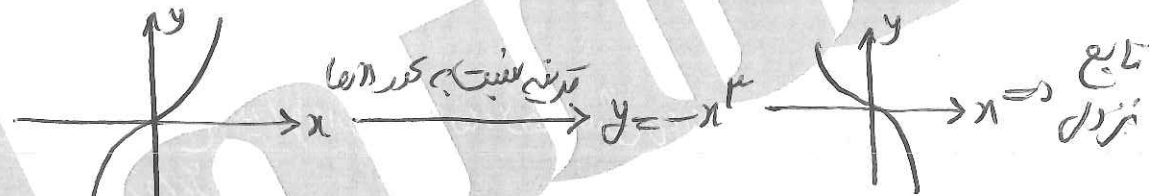 y
x
قرینه نسبت به محور xها
y = -x³
y
x ⇒ تابع
نزولی